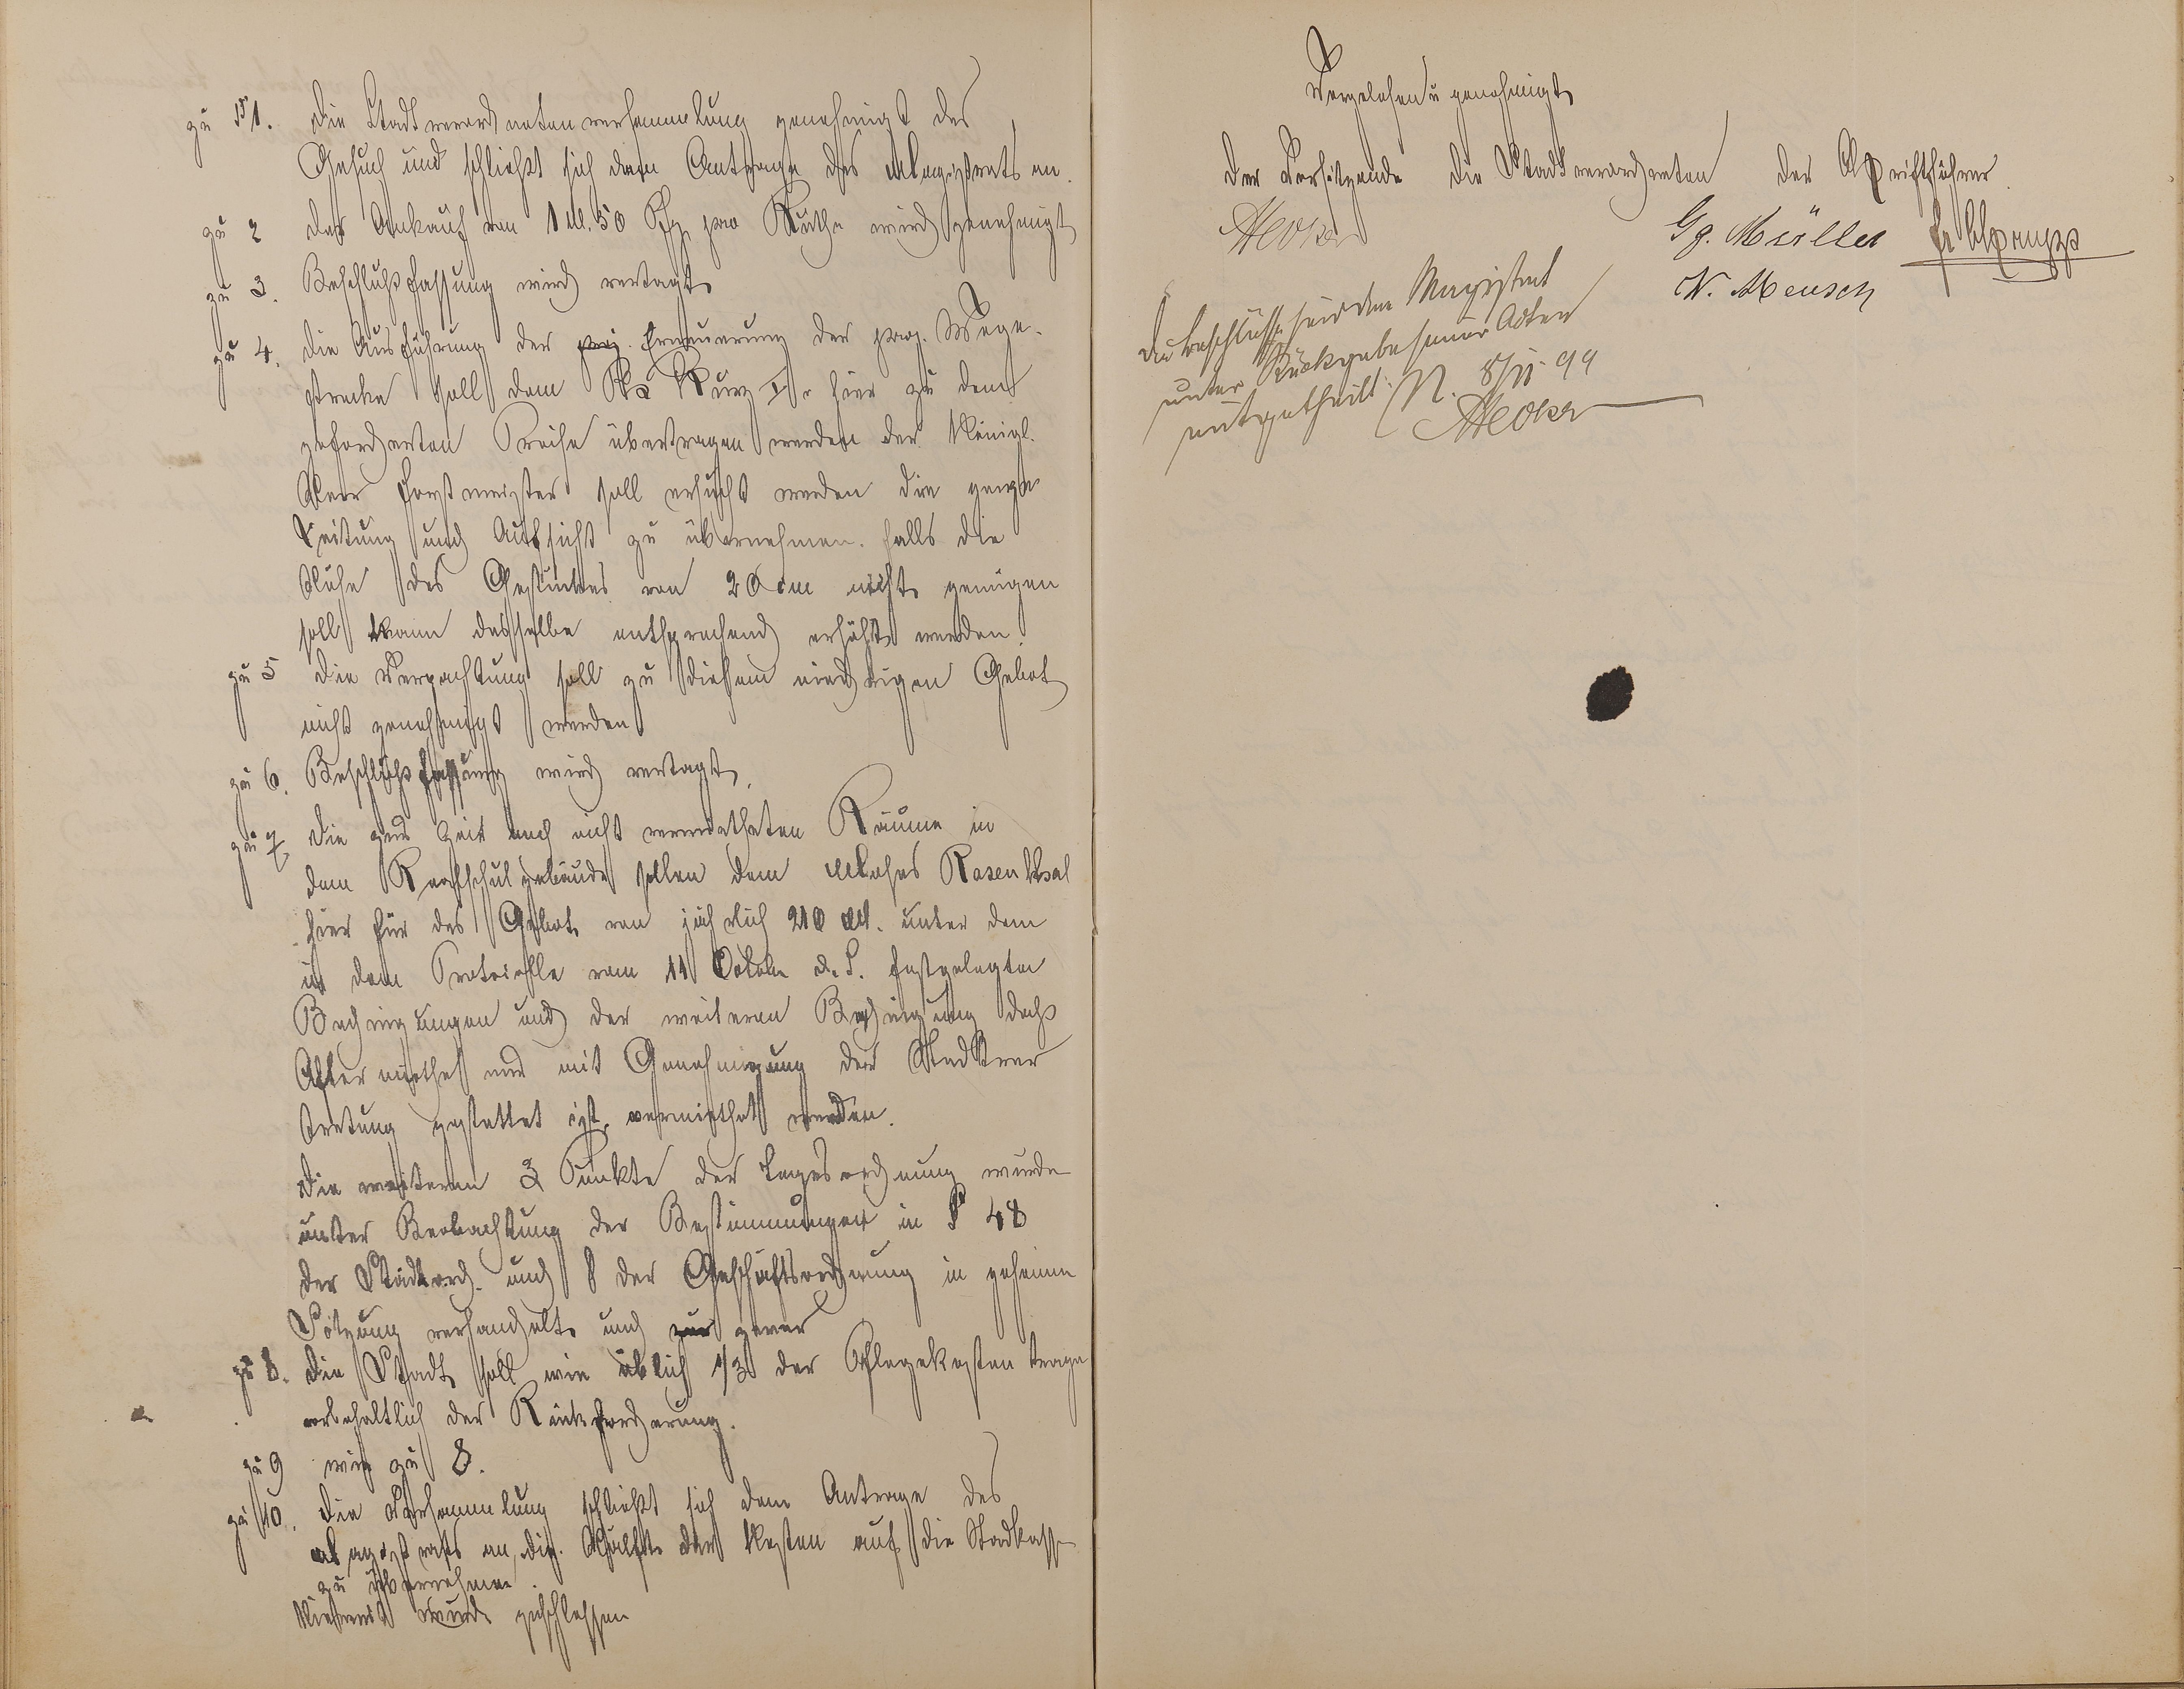 zu 1. Die Stadtverordnetenversammlung genehmigt das
Gesuch und schließt sich dem Antrage des Magistrats an.
zu 2 Der Ankauf von 1 M. 50 Pfg pro Ruthe wird genehmigt
zu 3. Beschlußfassung wird vertagt
zu 4. Die Ausführung der Erneuerung der proj. Wege-
strecke soll dem Kurz I. hier zu dem
geforderten Preise übertragen werden der Königl.
Herr Forstmeister soll ersucht werden die ganze
Leitung und Aufsicht zu übernehmen. Falls die
Höhe des Gestückes von 20 cm nicht genügen
soll kann dasselbe entsprechend erhöht werden.
zu 5 Die Verpachtung soll zu diesem niedrigen Gebot
nicht genehmigt werden
zu 6. Beschlußfassung wird vertagt.
zu 7 Die zur Zeit noch nicht vermietheten Räume in
dem Realschulgebäude sollen dem Moses Rosenthal
hier für das Gebot von jährlich 210 M. unter dem
in dem Protocolle vom 11 October d. J. festgelegten
Bedingungen und der weiteren Bedingung daß
Aftermiethe nur mit Genehmigung der Stadtver
tretung gestattet ist, vermiethet werden.
Die weiteren 3 Punkte der Tagesordnung wurde
unter Beobachtung der Bestimmungen in § 48
der Städteord. und § der Geschäftsordnung in geheimer
Sitzung verhandelt und zwar
zu 8. Die Stadt soll wie üblich 1/3 der Pflegekosten tragen
vorbehaltlich der Rückforderung.
zu 9 wie zu 8.
zu 10. Die Versammlung schließt sich dem Antrage des
Magistrats an, die Hälfte der Kosten auf die Stadtkasse
zu übernehmen.
Hiermit wurde geschlossen
Vorgelesen u genehmigt
Der Vorsitzende Die Stadtverordneten Der Schriftführer
Gg. Müller
N. Mensch
Die Beschlüsse sind dem Magistrat
unter Rückgabe seiner Acten
mitgetheilt. N. 8/11 99